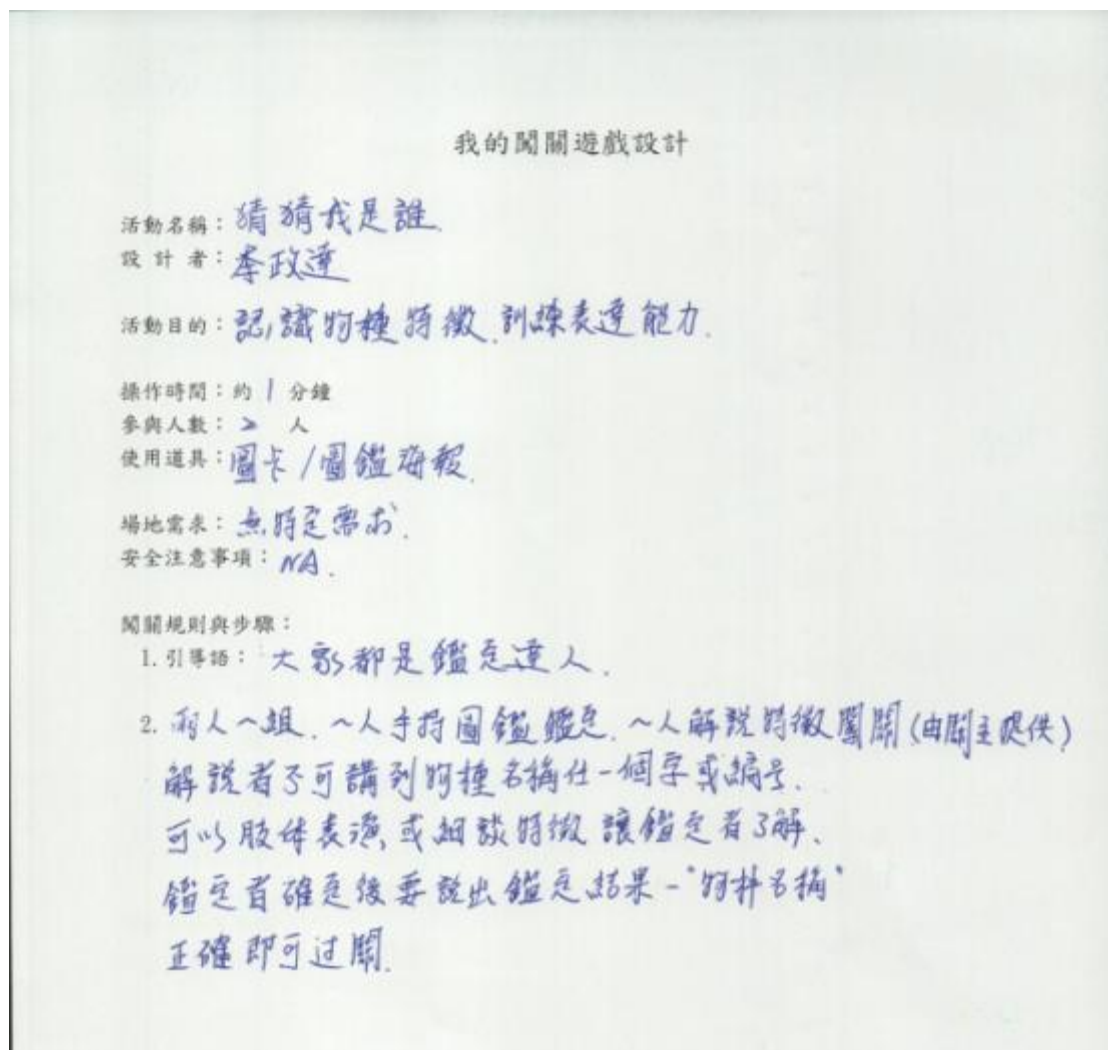 我的闖關遊戲設計
活動名稱：猜猜我是誰.
設 計 者：李政達
活動目的：認識物種特徵.訓練表達能力.
操作時間：約 1 分鐘
參與人數：2 人
使用道具：圖卡/圖鑑海報.
場地需求：無特定需求.
安全注意事項：NA.
闖關規則與步驟：
1. 引導語：大家都是鑑定達人.
2. 兩人~組.~人手持圖鑑鑑定.~人解說特徵闖關(由關主提供)
解說者不可講到物種名稱任一個字或編号.
可以肢体表演,或細談特徵讓鑑定者了解.
鑑定者確定後要說出鑑定結果-"物种名稱"
正確即可过關.